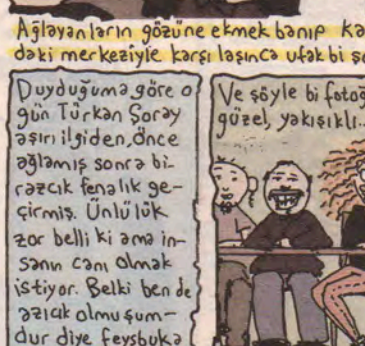 Ağlayanların gözüne ekmek banıp
daki merkeziyle karşılaşınca ufak bi
Duyduğuma göre o
gün Türkan Şoray
aşırı ilgiden, önce
ağlamış sonra bi-
razcık fenalık ge-
çirmiş. Ünlü lük
zor belli ki ama in-
sanın canı olmak
istiyor. Belki ben de
azıcık olmuşum-
dur diye feysbuka
Ve şöyle bi
güzel, yakışıklı...